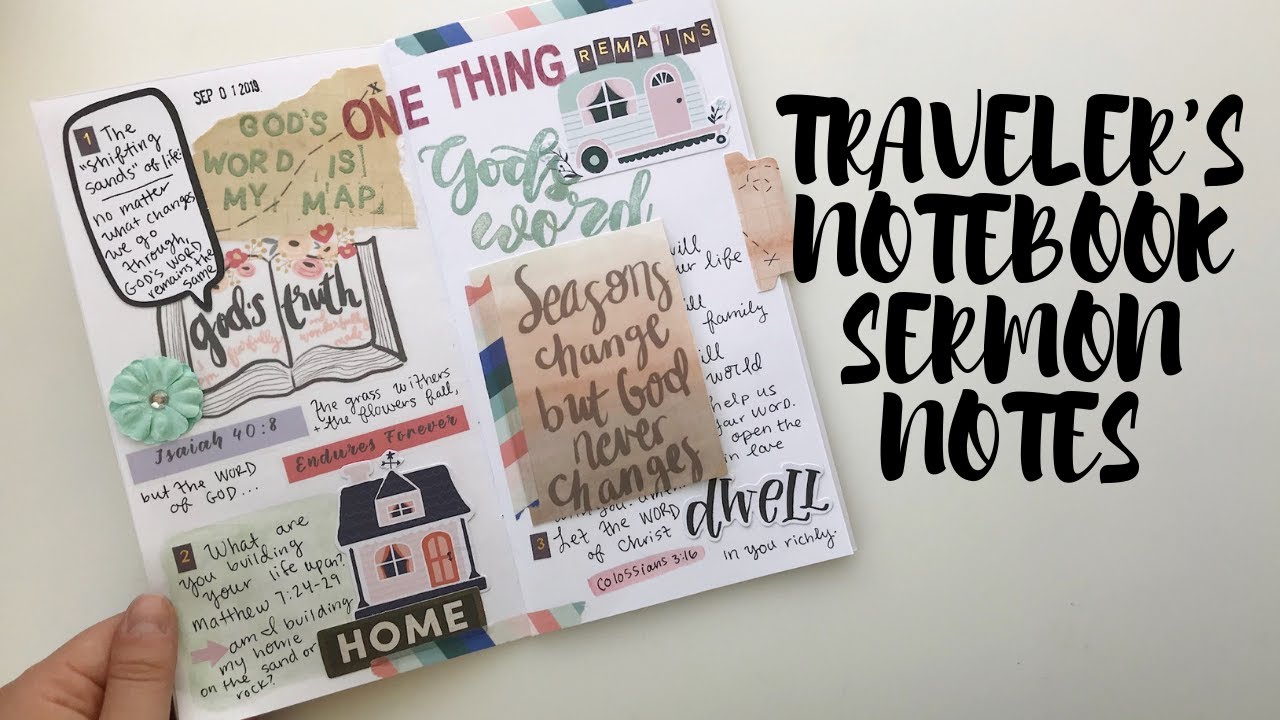 SEP 01 2019
1 The
"shifting
sands" of life:
no matter
what changes,
we go
through
GOD'S WORD
remains the
same
GOD'S
WORD IS
MY MAP
X
god's truth
fearfully
wonderfully
made
Isaiah 40:8
the grass withers
+ the flowers fall,
Endures Forever
but the WORD
of GOD...
2 What are
you building
your life upon?
Matthew 7:24-29
am I building
my home
on the sand or
rock?
HOME
ONE THING REMAINS
God's
word
Seasons
change
but God
never
changes
will
our life
will
family
will
world
help us
your WORD.
open the
in love
dwell
3 Let the WORD
of Christ
Colossians 3:16
in you richly.
TRAVELER'S
NOTEBOOK
SERMON
NOTES